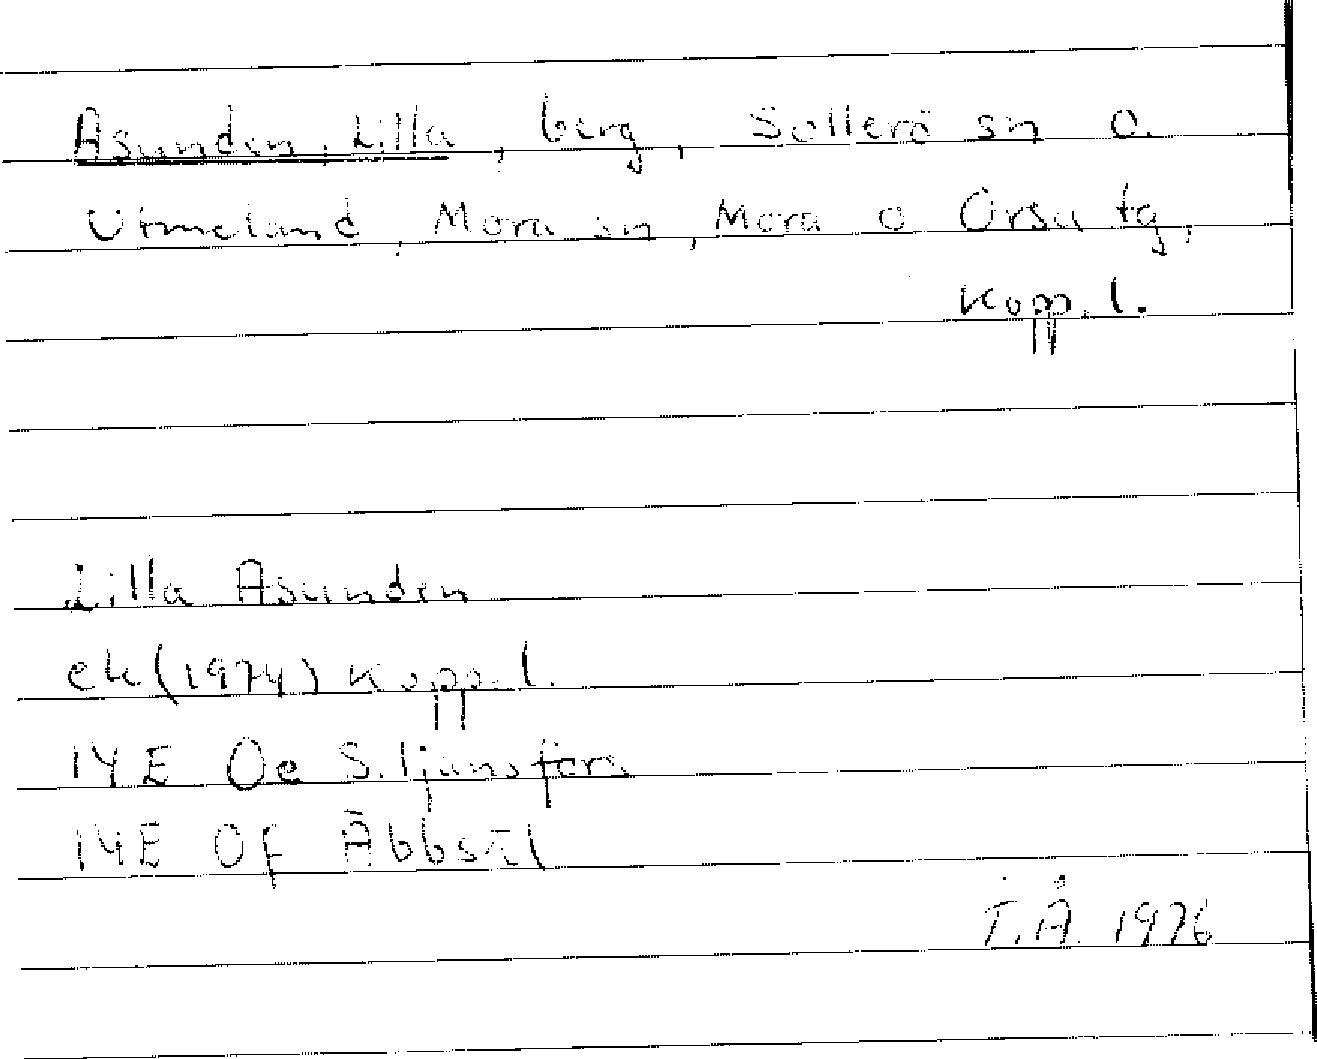 Asunden, Lilla, berg, Sollerö sn o.
Utmeland, Mora sn, Mora o Orsa tg,
Kopp. l.
Lilla Asunden
ek (1974) Kopp. l.
14E Oe Siljansfors
14E Of
T.Å. 1976